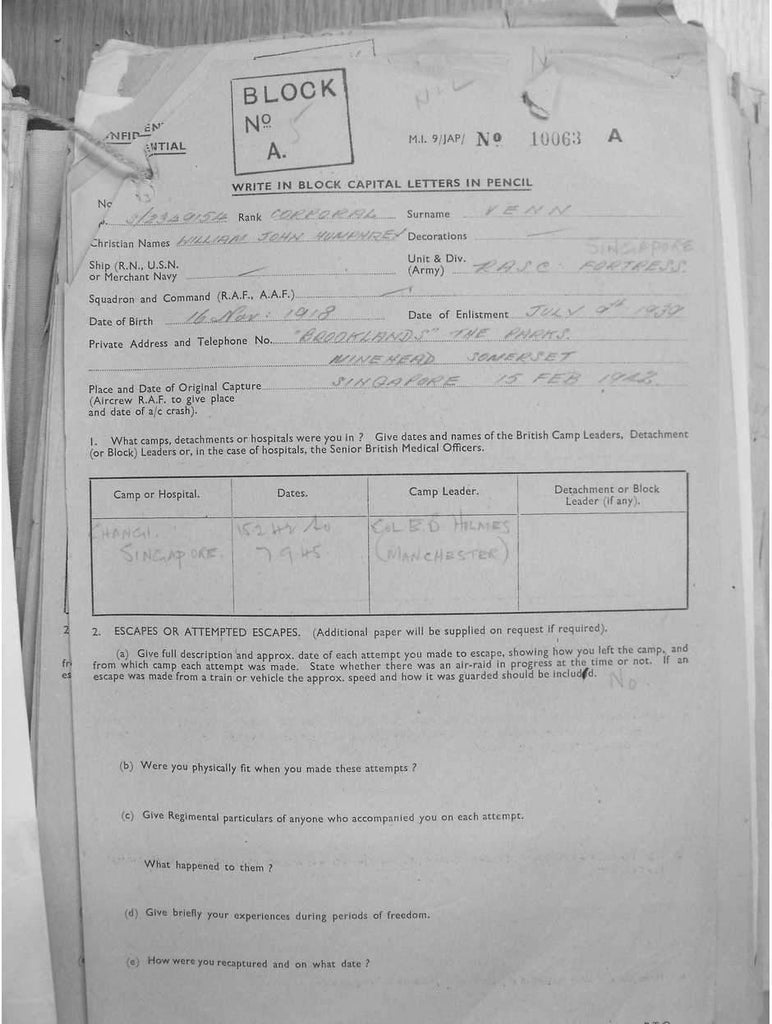 BLOCK
No 5
A.
NFID EN
NTIAL
NIL
M.I. 9/JAP/ No 10063 A
WRITE IN BLOCK CAPITAL LETTERS IN PENCIL
No Rank CORPORAL Surname VENN
Christian Names WILLIAM JOHN HUMPHREY Decorations
SINGAPORE
Ship (R.N., U.S.N. or Merchant Navy Unit & Div. (Army) R.A.S.C. FORTRESS.
Squadron and Command (R.A.F., A.A.F.)
Date of Birth 16 Nov: 1918 Date of Enlistment JULY 9th 1939
Private Address and Telephone No. "BROOKLANDS" THE PARKS.
MINEHEAD SOMERSET
Place and Date of Original Capture SINGAPORE 15 FEB 1942
(Aircrew R.A.F. to give place
and date of a/c crash).
1. What camps, detachments or hospitals were you in ? Give dates and names of the British Camp Leaders, Detachment
(or Block) Leaders or, in the case of hospitals, the Senior British Medical Officers.
Camp or Hospital. Dates. Camp Leader. Detachment or Block
Leader (if any).
CHANGI. 15 2 42 to COL E.B HOLMES
SINGAPORE. 7 9 45 (MANCHESTER)
2. ESCAPES OR ATTEMPTED ESCAPES. (Additional paper will be supplied on request if required).
(a) Give full description and approx. date of each attempt you made to escape, showing how you left the camp, and
from which camp each attempt was made. State whether there was an air-raid in progress at the time or not. If an
escape was made from a train or vehicle the approx. speed and how it was guarded should be included.
No.
(b) Were you physically fit when you made these attempts ?
(c) Give Regimental particulars of anyone who accompanied you on each attempt.
What happened to them ?
(d) Give briefly your experiences during periods of freedom.
(e) How were you recaptured and on what date ?